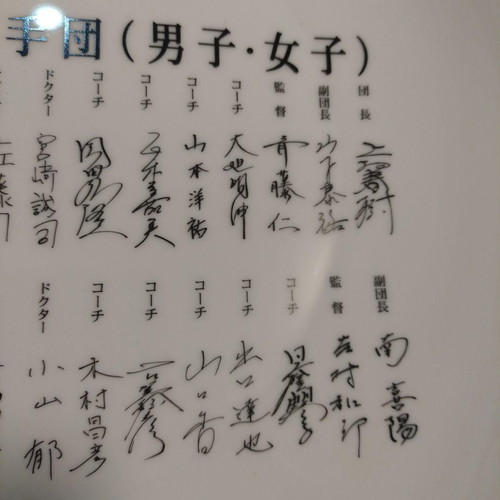 手団(男子・女子)
団長
上村春樹
副団長
山下泰裕
監督
斉藤仁
コーチ
大迫明伸
コーチ
山本洋祐
コーチ
正木嘉美
コーチ
岡田弘隆
ドクター
宮崎誠司
副団長
南喜陽
監督
吉村和郎
コーチ
日蔭暢年
コーチ
出口達也
コーチ
山口香
コーチ
コーチ
木村昌彦
ドクター
小山郁